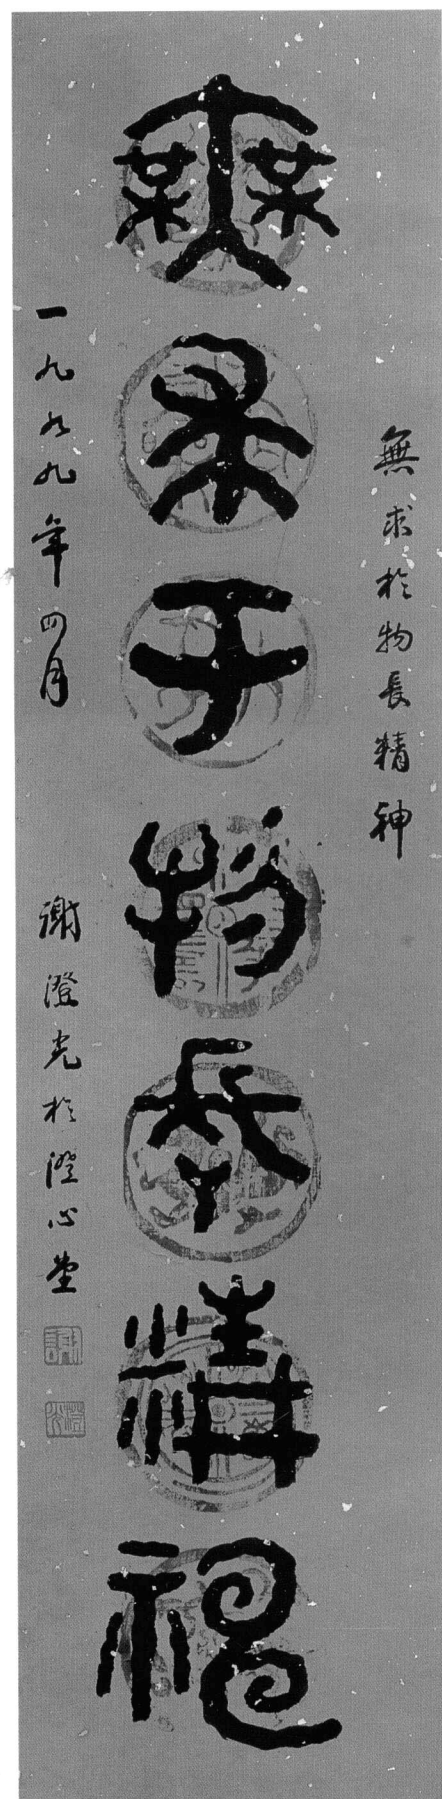 無求于物長精神
無求於物長精神
一九九九年四月
謝澄光於澄心堂
謝
澄光